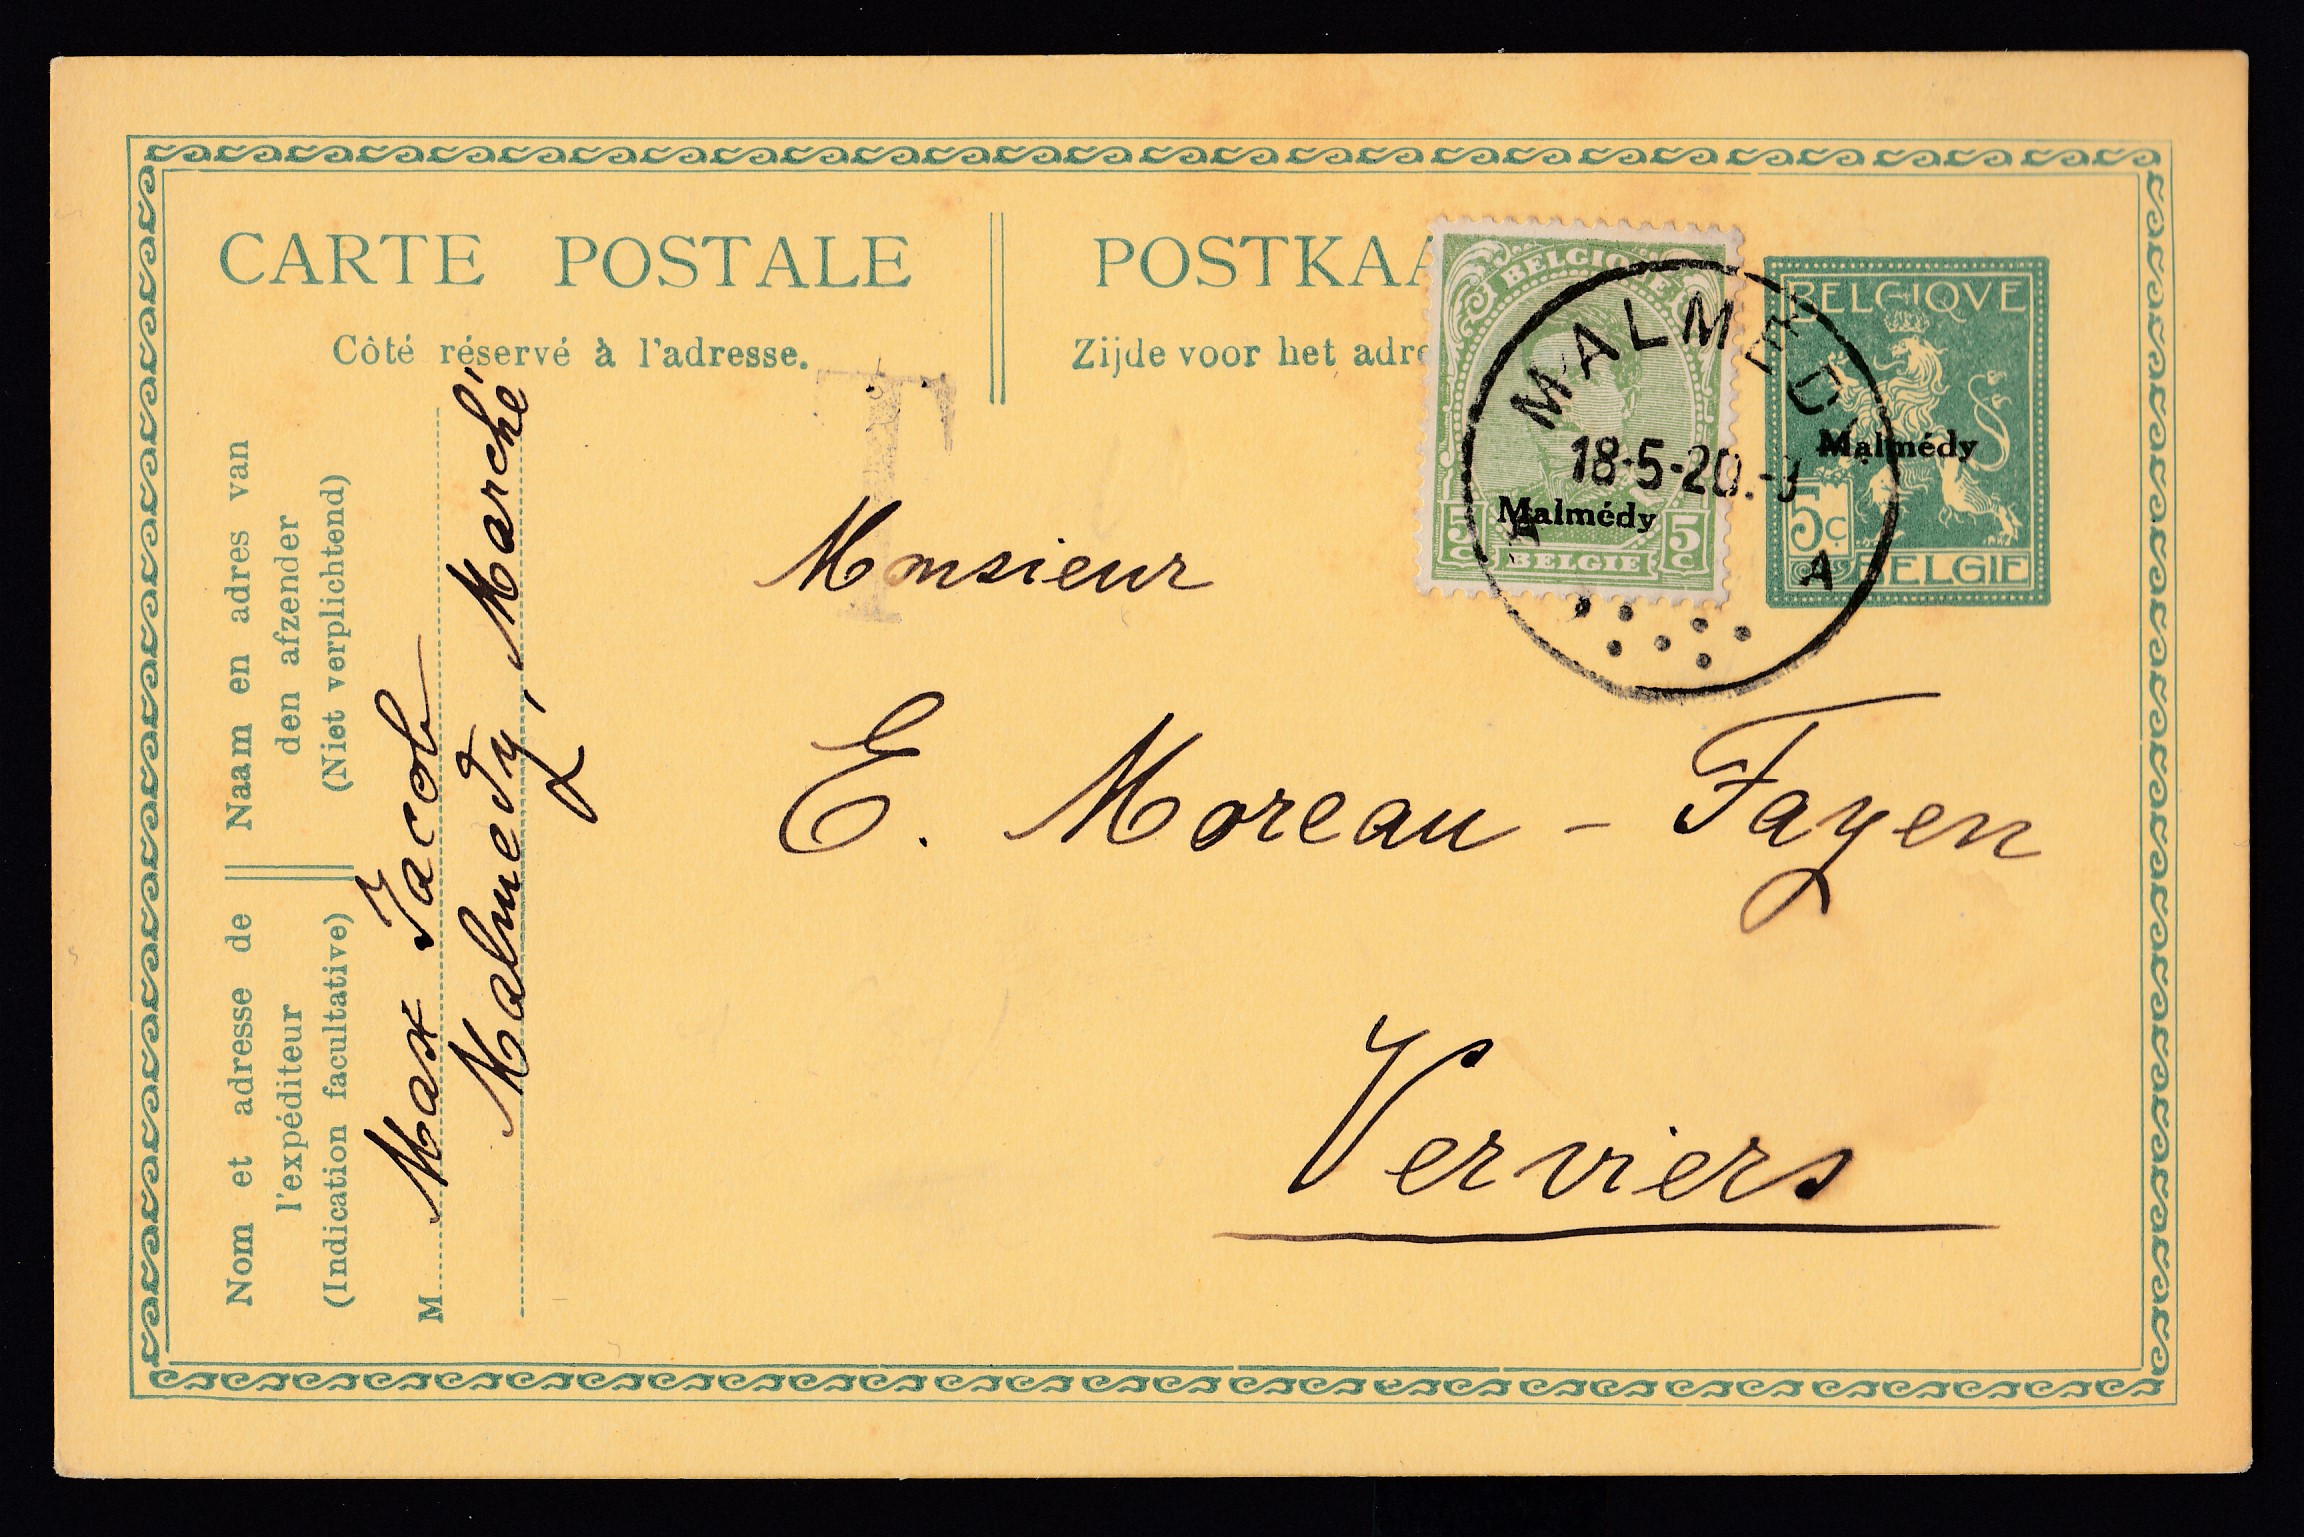 CARTE POSTALE
Côté réservé à l'adresse.
POSTKAA
Zijde voor het adre
BELGIQUE
5c 5c
BELGIE
Malmédy
BELGIQVE
5c
BELGIE
Malmédy
MALMEDY
18-5-20
A
T
Monsieur
E. Moreau - Fayen
Verviers
Naam en adres van
den afzender
(Niet verplichtend)
Nom et adresse de
l'expéditeur
(Indication facultative)
M Max Jacob
Malmedy, Marché